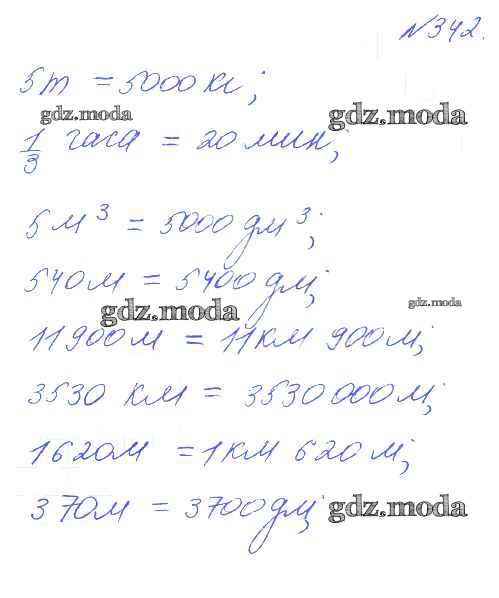 №342.
5т = 5000 кг;
gdz.moda gdz.moda
1/3 часа = 20 мин;
5 м³ = 5000 дм³;
540м = 5400 дм;
gdz.moda gdz.moda
11900м = 11км 900м;
3530 км = 3530000м;
1620м = 1км 620м;
370м = 3700дм; gdz.moda